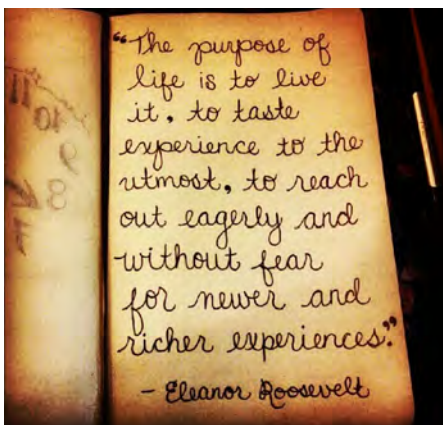 “The purpose of
life is to live
it, to taste
experience to the
utmost, to reach
out eagerly and
without fear
for newer and
richer experiences.”
- Eleanor Roosevelt